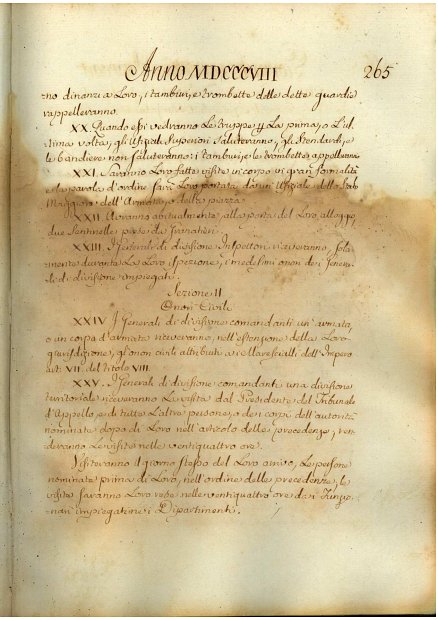 Anno MDCCCVIII 265
no dinanzi a Loro, i tamburi, e trombette delle dette guardie
rappelleranno.
XX Quando essi vedranno Le truppe p La prima, o L'ul-
tima volta, gli Ufiziali Superiori Saluteranno, gli Stendardi, e
Le bandiere non Saluteranno: i tamburi, e Le trombette appelleranno.
XXI. Saranno Loro fatte visite in corpo in gran formalità
e La parola d'ordine sarà Loro portata da un Ufiziale dello Stato
Maggiore dell'Armata, o della piazza.
XXII. Avranno abitualmente alla porta del Loro alloggio,
due Sentinelle prese da Granatieri.
XXIII. I Generali di divisione Inspettori riceveranno, Sola-
mente durante La Loro ispezione, i medesimi onori dei Genera-
li di divisione impiegati.
Sezione II
Onori Civili
XXIV I Generali di divisione comandanti un'armata,
o un corpo d'armata riceveranno, nell'estenzione della Loro
giurisdizione, gl'onori civili attribuiti ai Marescialli dell'Impero
art: VII del titolo VIII.
XXV. I Generali di divisione comandanti una divisione
territoriale riceveranno La visita dal Presidente del Tribunale
d'Appello, e di tutte L'altre persone, o dei corpi dell'autorità
nominate dopo di Loro nell'articolo delle precedenze, ren-
deranno Le visite nelle ventiquattro ore.
Visiteranno il giorno stesso del Loro arrivo, Le persone
nominate prima di Loro, nell'ordine delle precedenze, le
visite saranno Loro rese nelle ventiquattro ore dai Funzio-
nari impiegati ne i Dipartimenti.